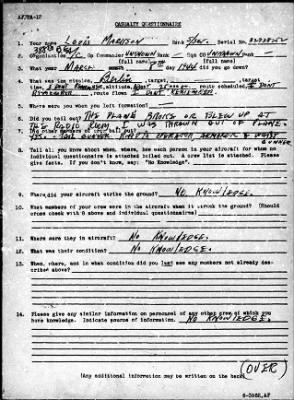 AF/PA-17
CASUALTY QUESTIONNAIRE
1. Your name Louis Rank S/Sgt. Serial No.
2. Organization Gp Commander Unknown Sqn CO Unknown
(full name) (full name)
3. What year 1944 month March day did you go down?
4. What was the mission, Berlin, target, target time,
altitude, route
flown
5. Where were you when you left formation?
6. Did you bail out? The plane broke or blew up at
the radio room I was thrown out of plane.
7. Did other members of crew bail out?
Yes. Tail gunner radio operator armorer & waist gunner
8. Tell all you know about when, where, how each person in your aircraft for whom no
individual questionnaire is attached bailed out. A crew list is attached. Please
give facts. If you don't know, say: "No Knowledge".
9. Where did your aircraft strike the ground? No knowledge.
10. What members of your crew were in the aircraft when it struck the ground? (Should
cross check with 8 above and individual questionnaires)
11. Where were they in aircraft? No knowledge.
12. What was their condition? No knowledge.
13. When, where, and in what condition did you last see any members not already des-
cribed above?
14. Please give any similar information on personnel of any other crew of which you
have knowledge. Indicate source of information. No knowledge.
(OVER)
(Any additional information may be written on the back)
6-3862,AF